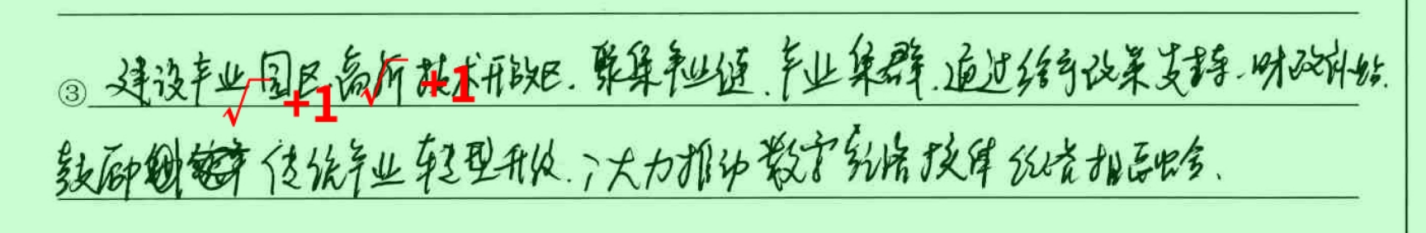 ③ 建设产业园区高新技术开放区.聚集产业链.产业集群.通过给予政策支持.财政补贴.
鼓励 传统产业转型升级.大力推动数字 技 相 合、
√ +1 √ +1